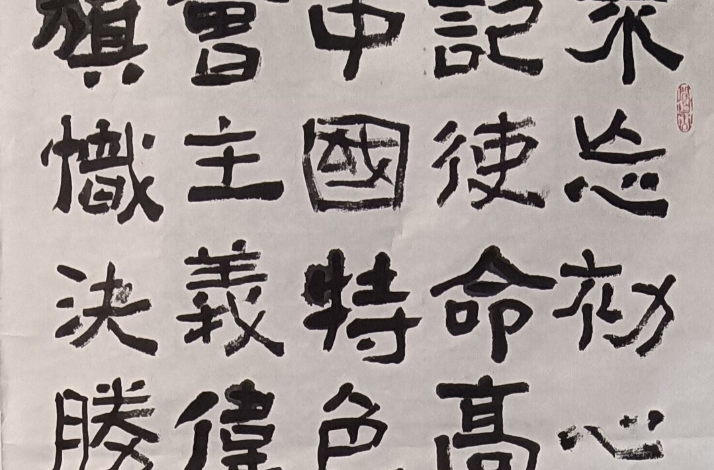 忘初心
記使命高
中國特色
會主義偉
旗幟決勝